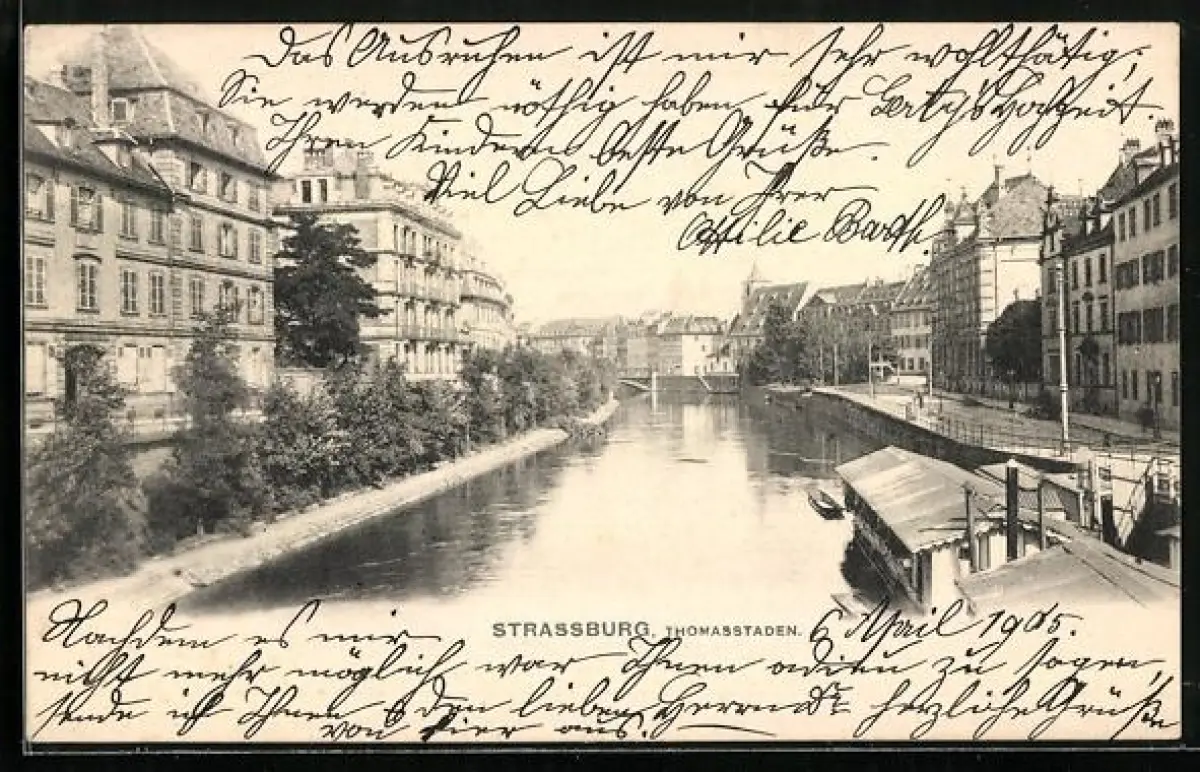 Das Ausruhen ist mir sehr wohlthätig;
Sie werden nöthig haben für Hochzeit.
Ihren Kindern beste Grüße.
Viel Liebe von Ihrer
Barth.
STRASSBURG, THOMASSTADEN.
6 April 1905.
Nachdem es mir
nicht mehr möglich war Ihnen adieu zu sagen,
sende ich Ihnen & den lieben Herrn Dr herzliche Grüße
von hier aus.